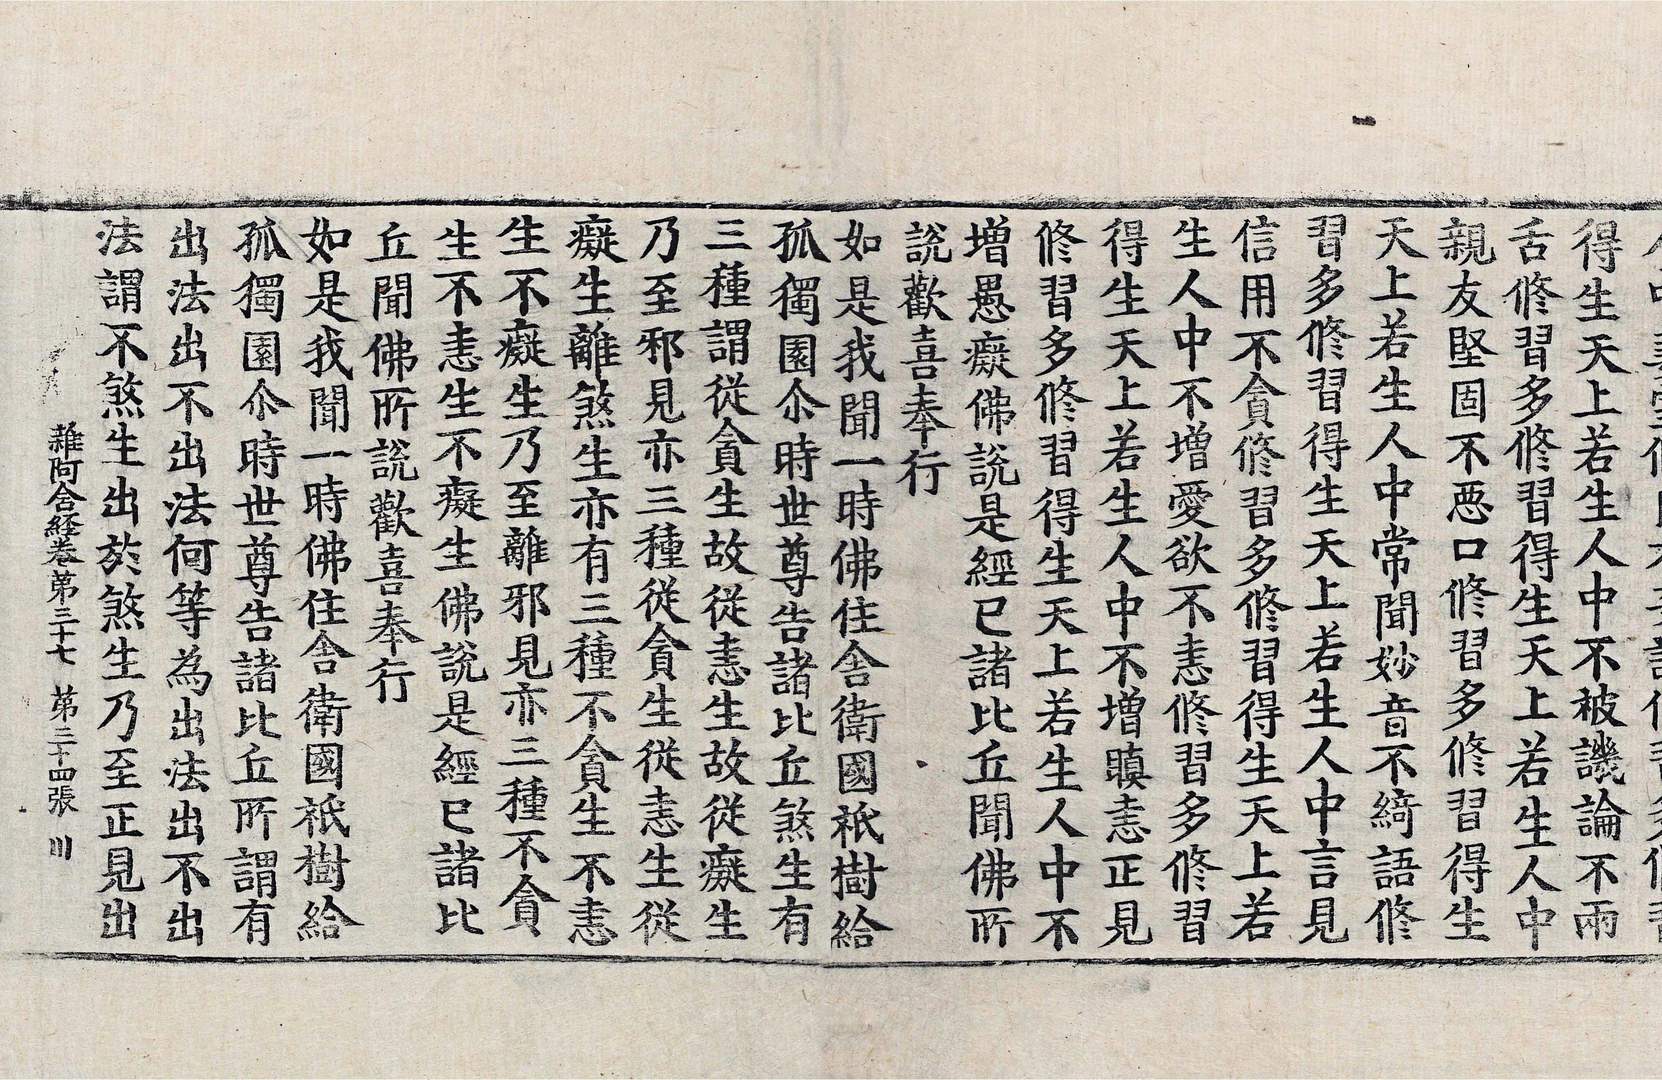 得生天上若生人中不被譏論不兩
舌修習多修習得生天上若生人中
親友堅固不悪口修習多修習得生
天上若生人中常聞妙音不綺語修
習多修習得生天上若生人中言見
信用不貪修習多修習得生天上若
生人中不增愛欲不恚修習多修習
得生天上若生人中不增瞋恚正見
修習多修習得生天上若生人中不
增愚癡佛說是經已諸比丘聞佛所
說歡喜奉行
如是我聞一時佛住舍衛國祇樹給
孤獨園尒時世尊告諸比丘煞生有
三種謂從貪生故從恚生故從癡生
乃至邪見亦三種從貪生從恚生從
癡生離煞生亦有三種不貪生不恚
生不癡生乃至離邪見亦三種不貪
生不恚生不癡生佛說是經已諸比
丘聞佛所說歡喜奉行
如是我聞一時佛住舍衛國祇樹給
孤獨園尒時世尊告諸比丘所謂有
出法出不出法何等為出法出不出
法謂不煞生出於煞生乃至正見出
雜阿含経卷第三十七 第三十四張 川